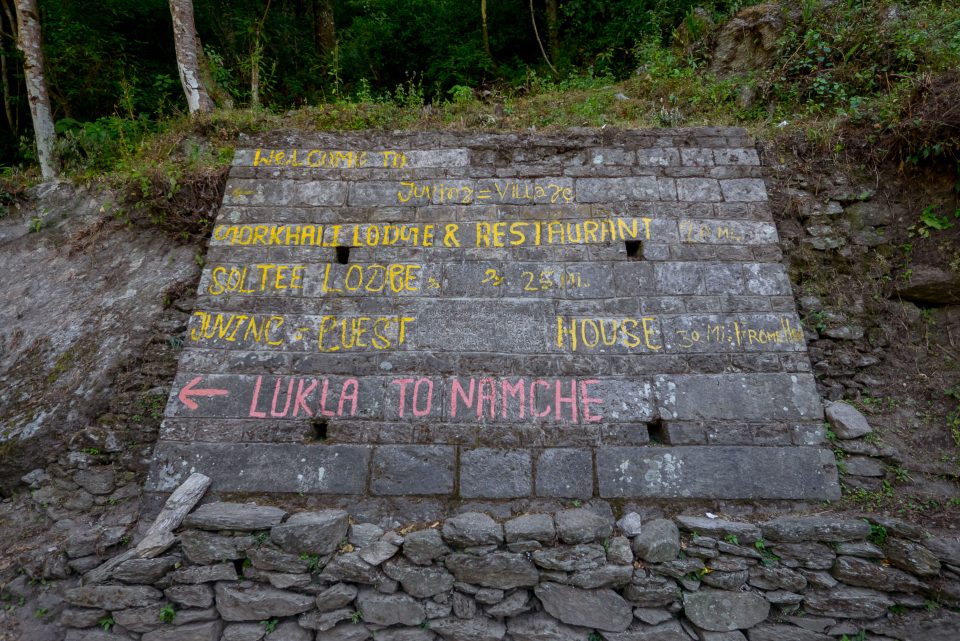 WELCOME TO
← JUVING = VILLAGE
GORKHALI LODGE & RESTAURANT 20 Mi.
SOLTEE LODGE 25 Mi.
JUVING = GUEST HOUSE 30 Mi. FROM
← LUKLA TO NAMCHE